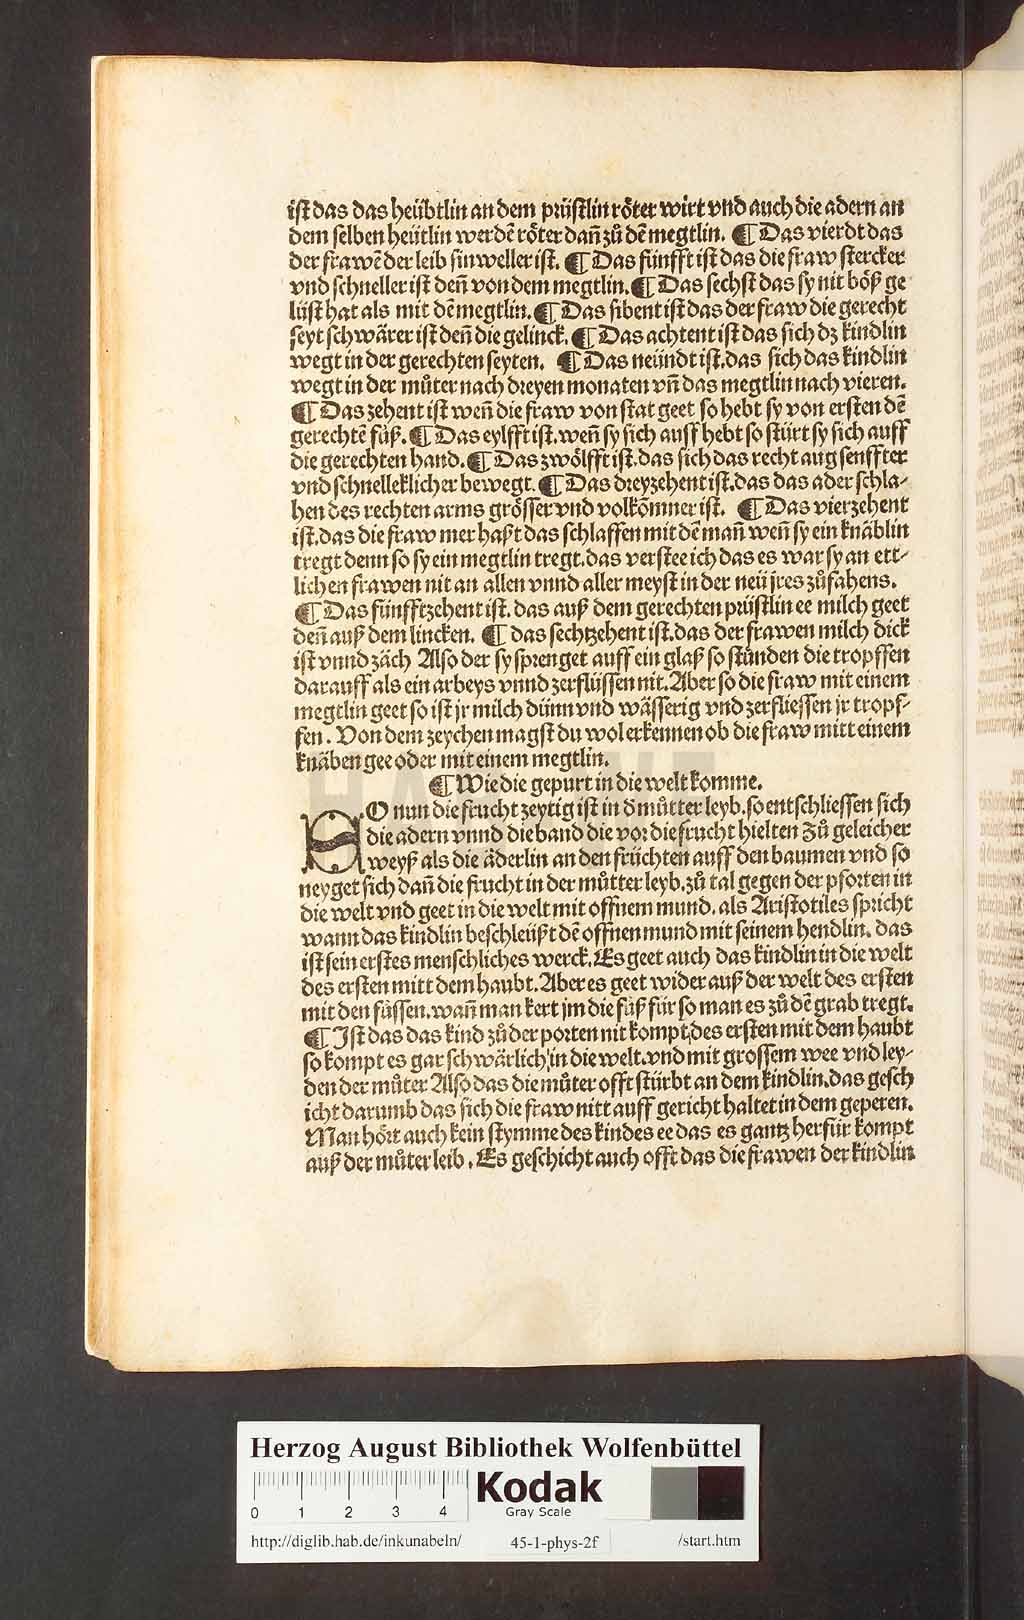 ist das das heübtlin an dem prüstlin röter wirt vnd auch die adern an
dem selben heütlin werdẽ röter dañ zů dẽ megtlin. ¶ Das vierdt das
der frawẽ der leib sinweller ist. ¶ Das fünfft ist das die fraw stercker
vnd schneller ist deñ von dem megtlin. ¶ Das sechst das sy nit böß ge
lüst hat als mit dẽ megtlin. ¶ Das sibent ist das der fraw die gerecht
seyt schwärer ist deñ die gelinck. ¶ Das achtent ist das sich dz kindlin
wegt in der gerechten seyten. ¶ Das neündt ist. das sich das kindlin
wegt in der můter nach dreyen monaten vñ das megtlin nach vieren.
¶ Das zehent ist weñ die fraw von stat geet so hebt sy von ersten dẽ
gerechtẽ fůß. ¶ Das eylfft ist. weñ sy sich auff hebt so stürt sy sich auff
die gerechten hand. ¶ Das zwölfft ist. das sich das recht aug senffter
vnd schnelleklicher bewegt. ¶ Das dreyzehent ist. das das ader schla-
hen des rechten arms grösser vnd volkõmner ist. ¶ Das vierzehent
ist. das die fraw mer haßt das schlaffen mit dẽ mañ weñ sy ein knäblin
tregt denn so sy ein megtlin tregt. das verstee ich das es war sy an ett-
lichen frawen nit an allen vnnd aller meyst in der neü jres zůfahens.
¶ Das fünfftzehent ist. das auß dem gerechten prüstlin ee milch geet
deñ auß dem lincken. ¶ das sechtzehent ist. das der frawen milch dick
ist vnnd zäch Also der sy sprenget auff ein glaß so stůnden die tropffen
darauff als ein arbeys vnnd zerflüssen nit. Aber so die fraw mit einem
megtlin geet so ist jr milch dünn vnd wässerig vnd zerfliessen jr tropf-
fen. Von dem zeychen magst du wol erkennen ob die fraw mitt einem
knäben gee oder mit einem megtlin.
¶ Wie die gepurt in die welt komme.
SO nun die frucht zeytig ist in d můtter leyb. so entschliessen sich
die adern vnnd die band die vor die frucht hielten Zů geleicher
weyß als die äderlin an den früchten auff den baumen vnd so
neyget sich dañ die frucht in der můtter leyb. zů tal gegen der pforten in
die welt vnd geet in die welt mit offnem mund. als Aristotiles spricht
wann das kindlin beschleüßt dẽ offnen mund mit seinem hendlin. das
ist sein erstes menschliches werck. Es geet auch das kindlin in die welt
des ersten mitt dem haubt. Aber es geet wider auß der welt des ersten
mit den füssen. wañ man kert jm die füß für so man es zů dẽ grab tregt.
¶ Ist das das kind zů der porten nit kompt des ersten mit dem haubt
so kompt es gar schwärlich in die welt. vnd mit grossem wee vnd ley-
den der můter Also das die můter offt stürbt an dem kindlin. das gesch
icht darumb das sich die fraw nitt auff gericht haltet in dem geperen.
Man hört auch kein stymme des kindes ee das es gantz herfür kompt
auß der můter leib. Es geschicht auch offt das die frawen der kindlin
HAB WF
Herzog August Bibliothek Wolfenbüttel
0 1 2 3 4
Kodak
Gray Scale
http://diglib.hab.de/inkunabeln/ 45-1-phys-2f /start.htm